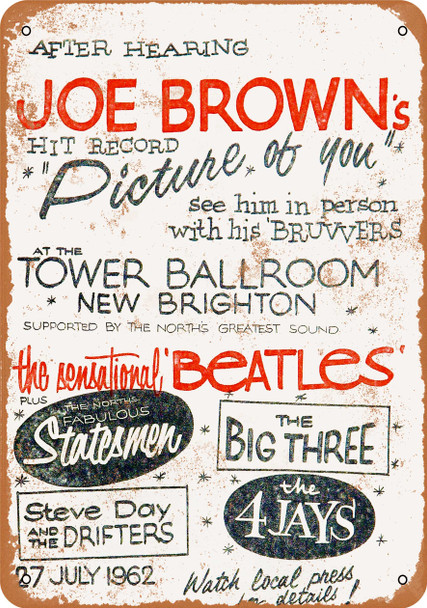 AFTER HEARING
JOE BROWN's
HIT RECORD
"Picture of you"
see him in person
with his 'BRUVVERS
AT THE
TOWER BALLROOM
NEW BRIGHTON
SUPPORTED BY THE NORTH'S GREATEST SOUND
the sensational 'BEATLES'
PLUS
THE NORTH'S
FABULOUS
Statesmen
THE
BIG THREE
Steve Day
AND THE DRIFTERS
the
4 JAYS
27 JULY 1962
Watch local press
details!